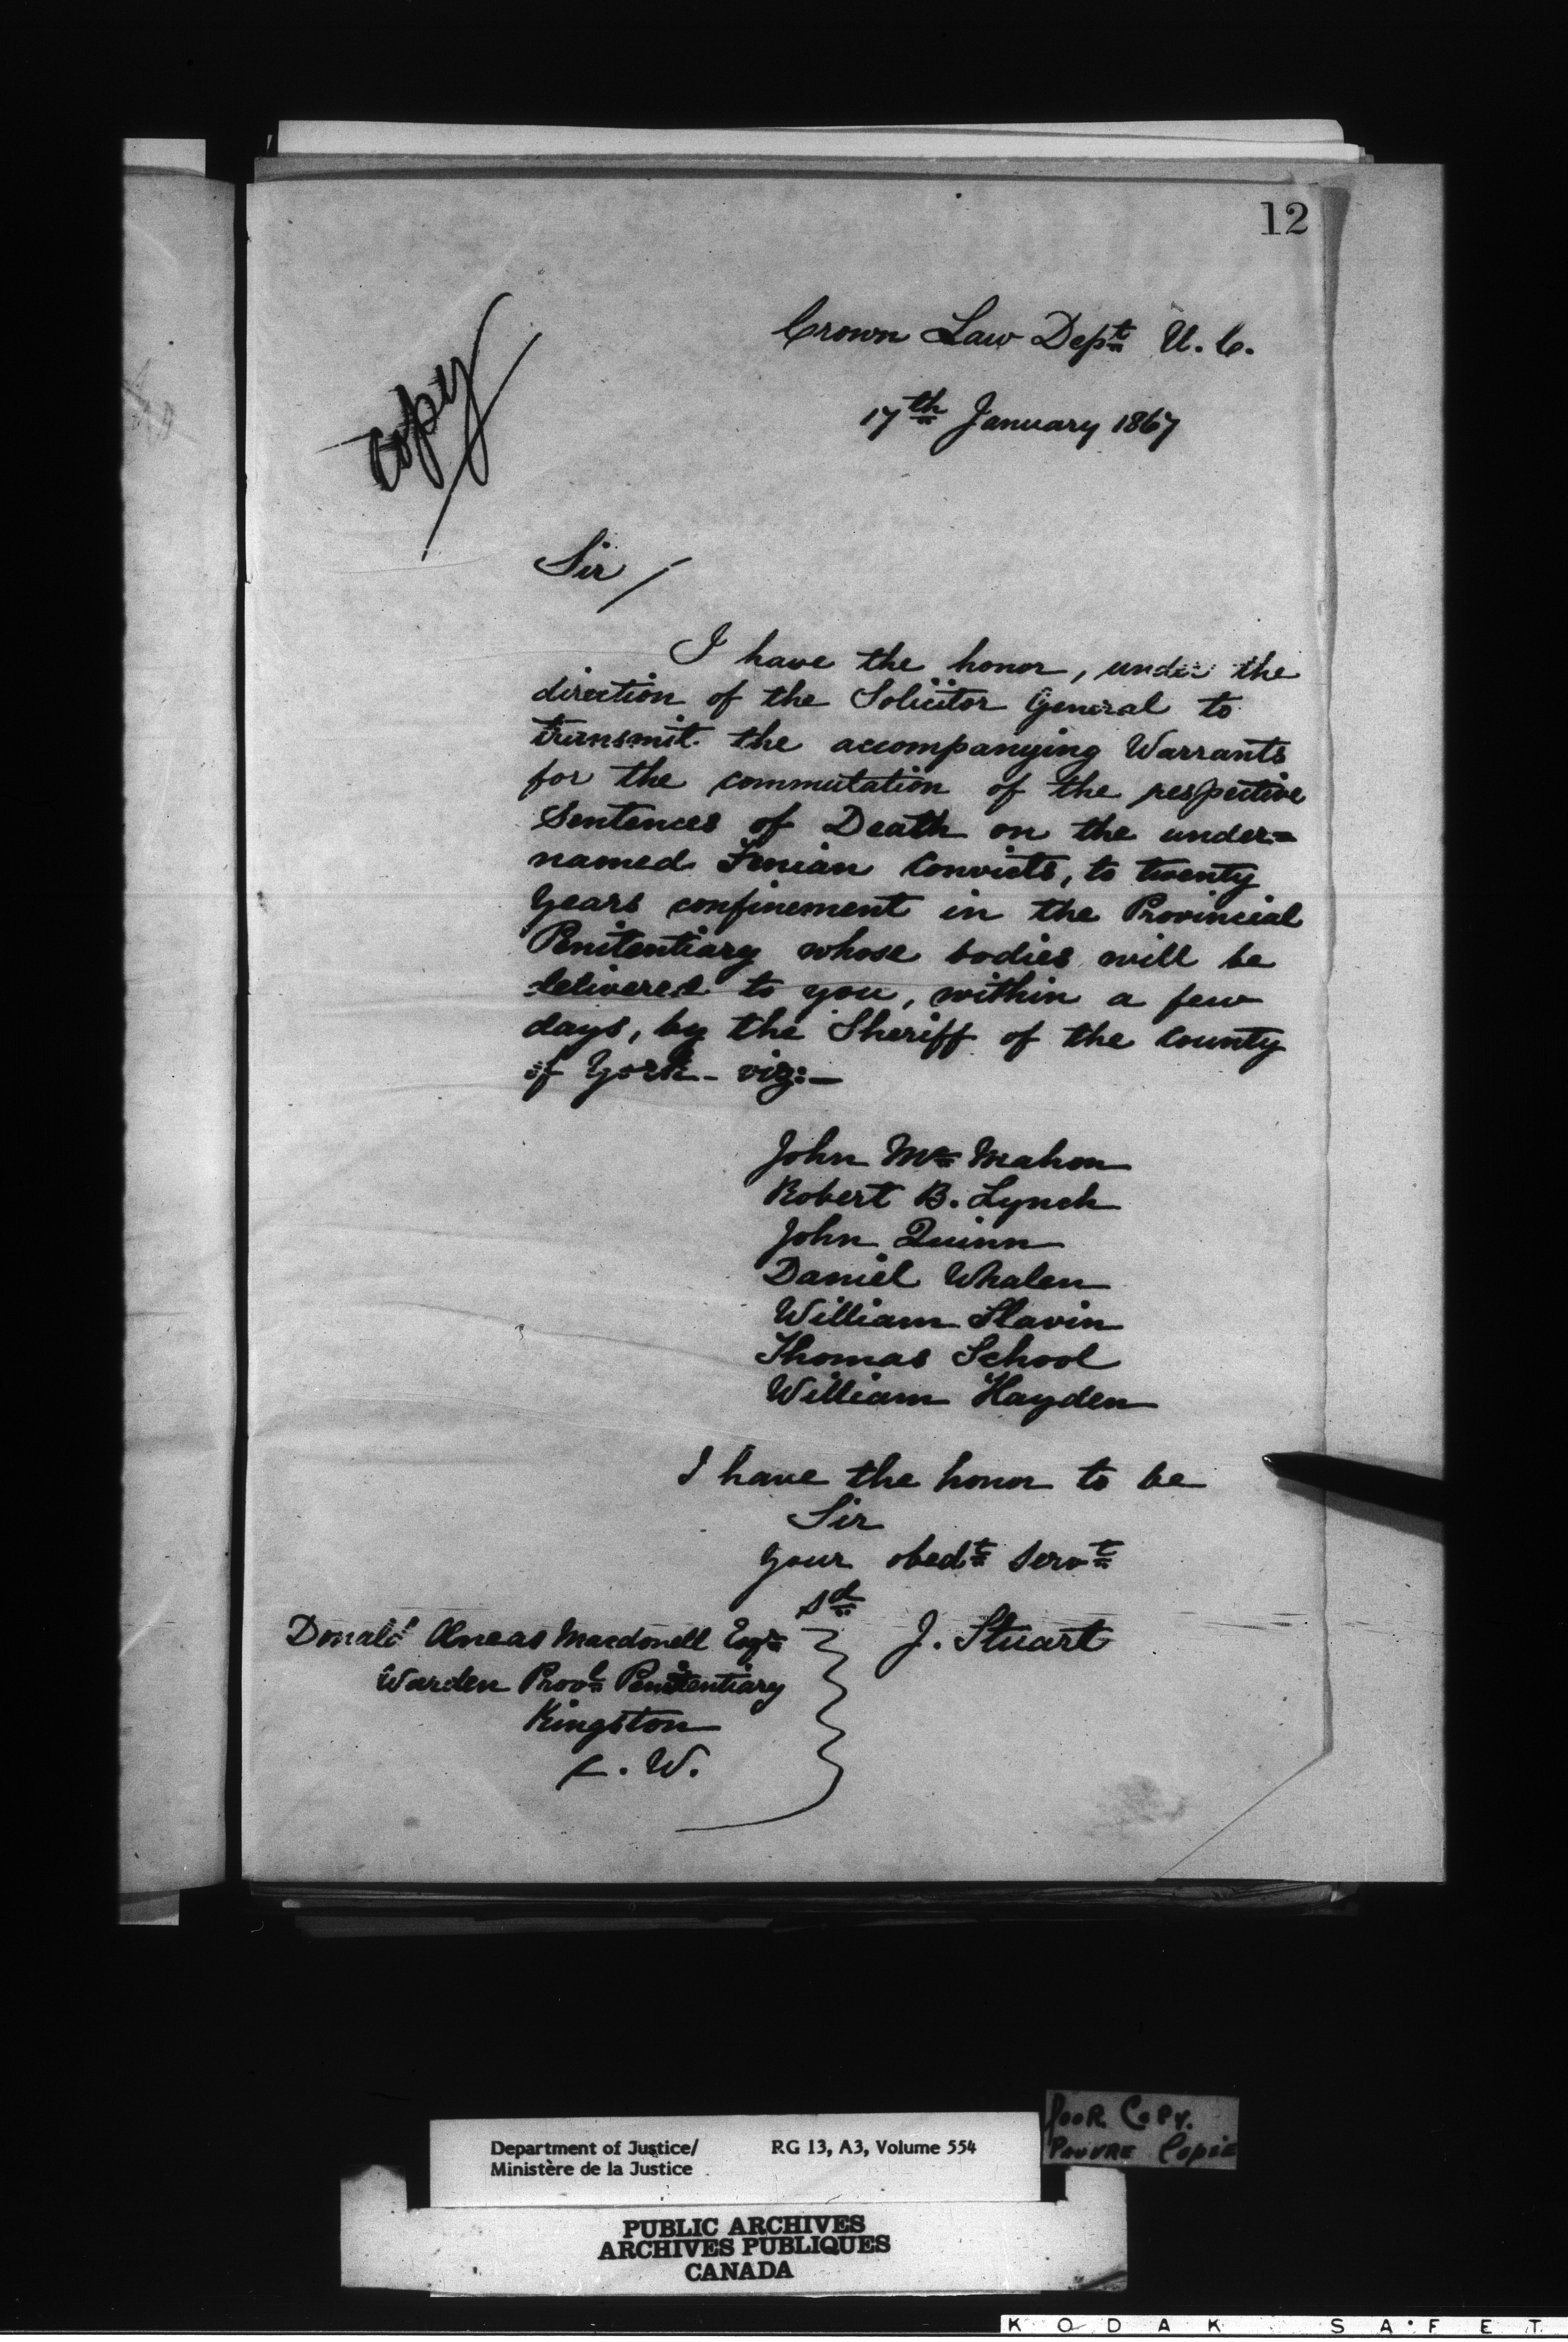 12
Crown Law Dept U.C.
17th January 1867
Copy
Sir
I have the honor, under the
direction of the Solicitor General to
transmit the accompanying Warrants
for the commutation of the respective
Sentences of Death on the under=
named Fenian Convicts, to twenty
Years confinement in the Provincial
Penitentiary whose bodies will be
delivered to you, within a few
days, by the Sheriff of the County
of York - viz:-
John Mc Mahon
Robert B. Lynch
John Quinn
Daniel Whalen
William Slavin
Thomas School
William Hayden
I have the honor to be
Sir
Your obedt Servt
Sd J. Stuart
Donald Æneas Macdonell Esqr
Warden Provl Penitentiary
Kingston
C.W.
POOR COPY.
PAUVRE COPIE
Department of Justice/ RG 13, A3, Volume 554
Ministère de la Justice
PUBLIC ARCHIVES
ARCHIVES PUBLIQUES
CANADA
KODAK SAFET